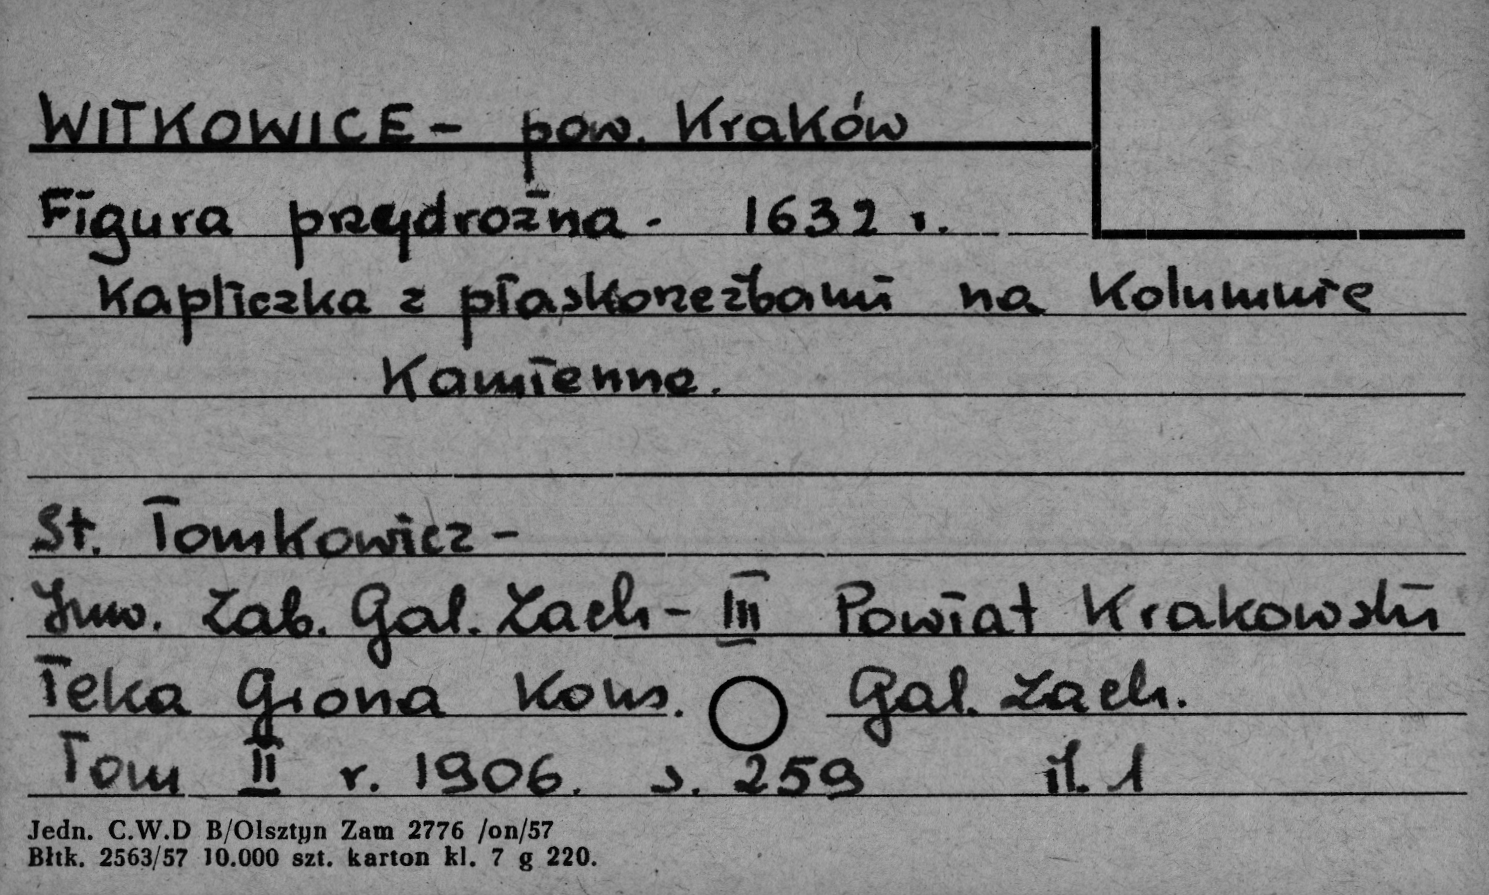 WITKOWICE - pow. Kraków
Figura przydrożna - 1632 r.
Kapliczka z płaskorzeźbami na Kolumnie
Kamienne.
St. Tomkowicz -
Inw. Zab. Gal. Zach - III Powiat Krakowski
Teka Grona Kons. Gal. Zach.
Tom II r. 1906. s. 259 il. 1
Jedn. C.W.D B/Olsztyn Zam 2776 /on/57
Błtk. 2563/57 10.000 szt. karton kl. 7 g 220.